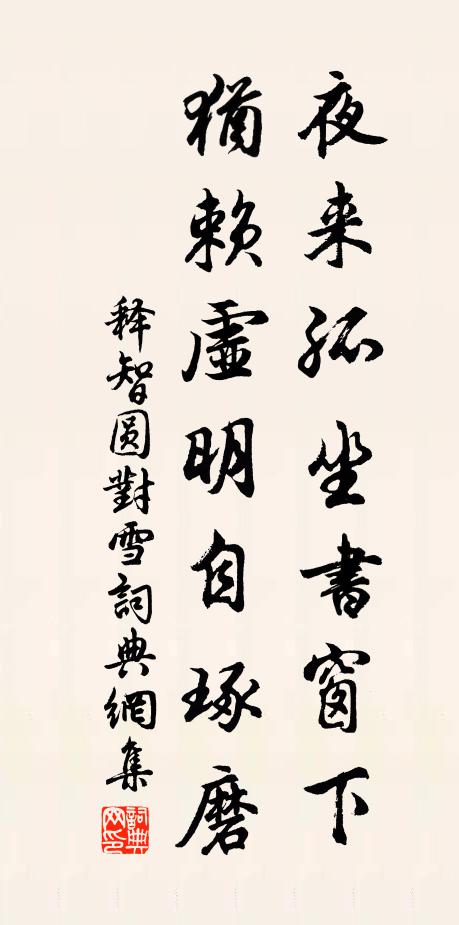 夜来孤坐書窗下
猶赖虛明自琢磨
释智圆對雪詞典網集
詞典網印